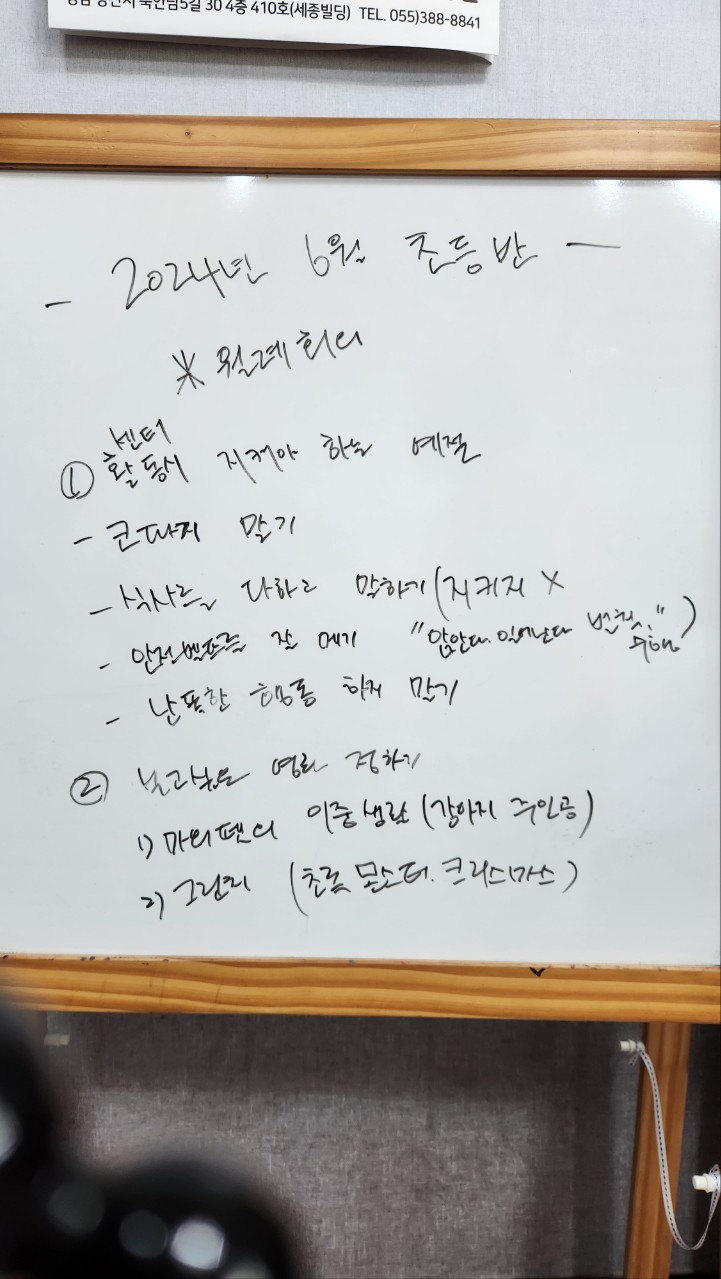 경남 양산시 북안남5길 30 4층 410호(세종빌딩) TEL. 055)388-8841
- 2024년 6월 초등반 -
※ 월례회의
센터
① 활동시 지켜야 하는 예절
- 코파지 말기
- 식사를 다하고 말하기 (지키지 X
- 안전벨트를 잘 메기 "앉았다. 일어난다 반칙.")
- 난폭한 행동 하지 말기
② 보고싶은 영화 정하기
1) 마이펫의 이중생활 (강아지 주인공)
2) 그린치 (초록 몬스터. 크리스마스)